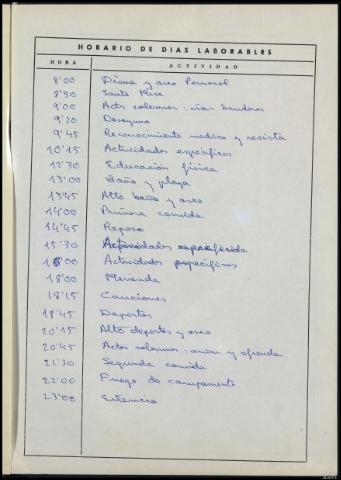 HORARIO DE DIAS LABORABLES
HORA ACTIVIDAD
8'00 Diana y aseo Personal
8'30 Santa Misa
9'00 Acto solemne: izar banderas
9'20 Desayuno
9'45 Reconocimiento medico y revista
10'15 Actividades específicas
12'30 Educación física
13'00 Baño y playa
13'45 Alto baño y aseo
14'00 Primera comida
14'45 Reposo
15'30
16'00 Actividades específicas
18'00 Merienda
18'15 Canciones
18'45 Deportes
20'15 Alto deportes y aseo
20'45 Actos solemnes: arriar y ofrenda
21'30 Segunda comida
22'00 Fuego de campamento
23'00 Silencio